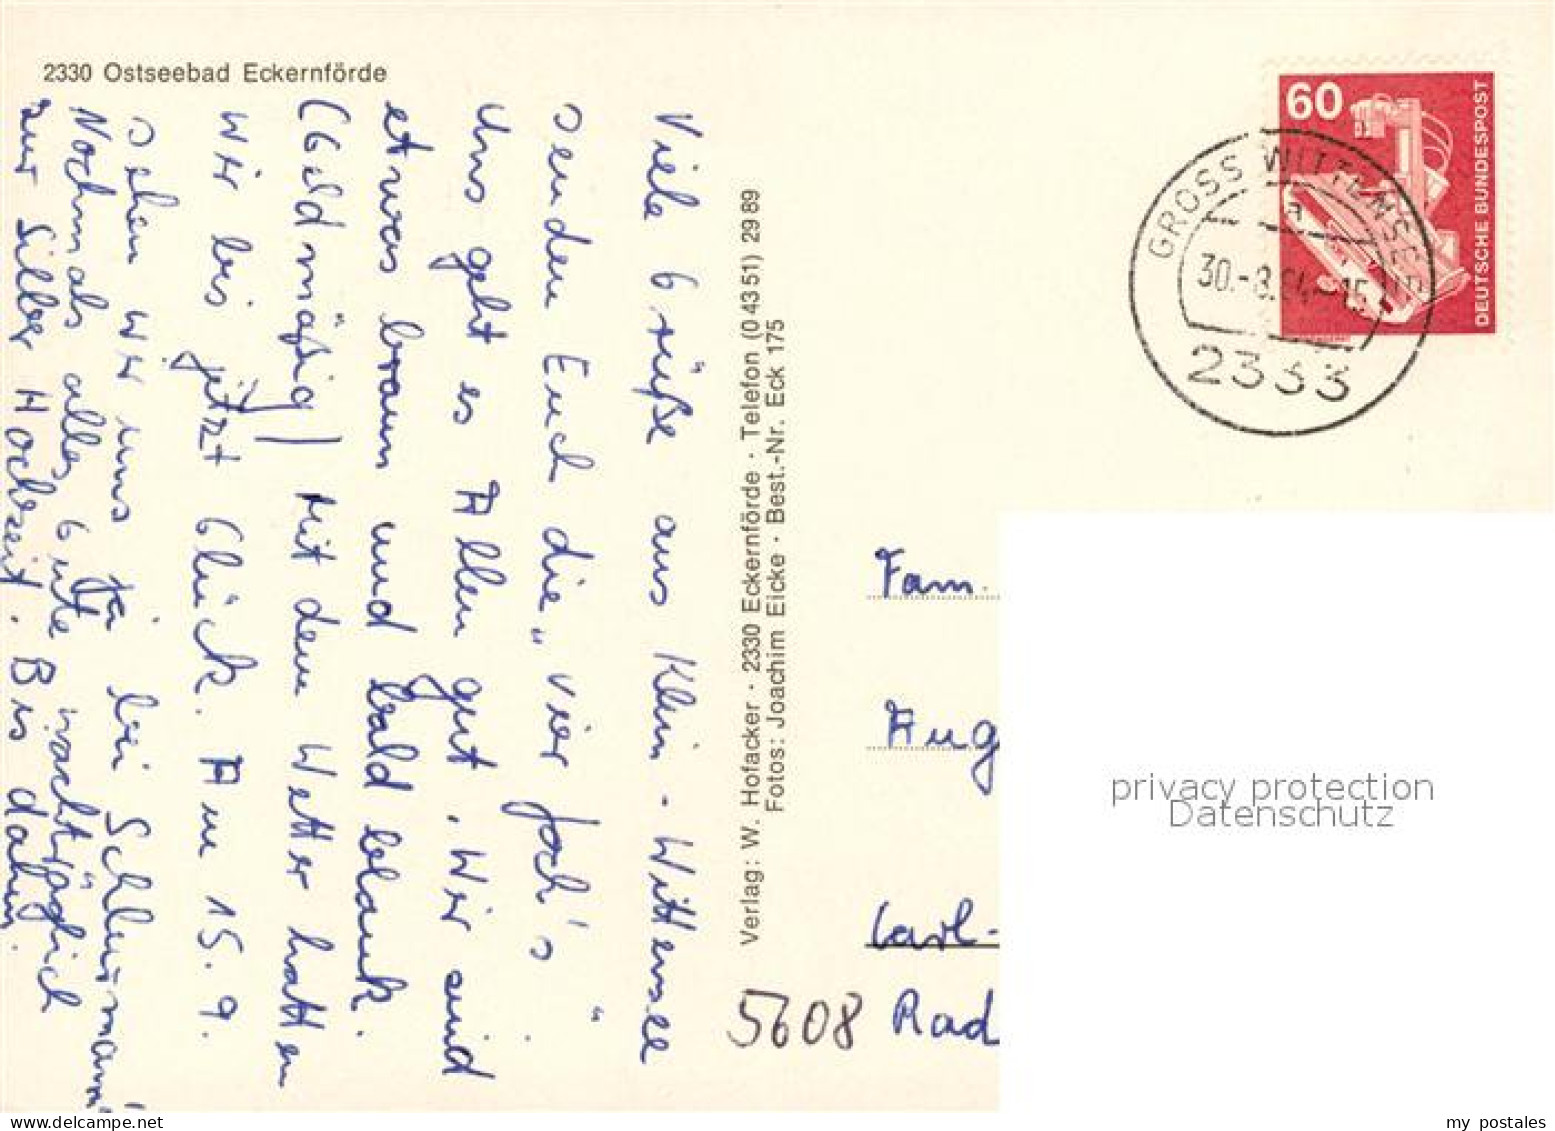 2330 Ostseebad Eckernförde
Viele Grüße aus Klein-Wittensee
senden Euch die „vier Joch's“.
Uns geht es Allen gut. Wir sind
etwas braun und bald blank.
(Geldmäßig) Mit dem Wetter hatten
wir bis jetzt Glück. Am 15.9.
sehen wir uns ja bei Schlürmann!
Nochmals alles Gute nachträglich
zur Silber Hochzeit. Bis dahin.
Verlag: W. Hofacker · 2330 Eckernförde · Telefon (0 43 51) 29 89
Fotos: Joachim Eicke · Best.-Nr. Eck 175
60
DEUTSCHE BUNDESPOST
GROSS WITTENSEE
a
30.-8.84-15
2333
Fam.
Aug
Carl-
5608 Rad
privacy protection
Datenschutz
my postales